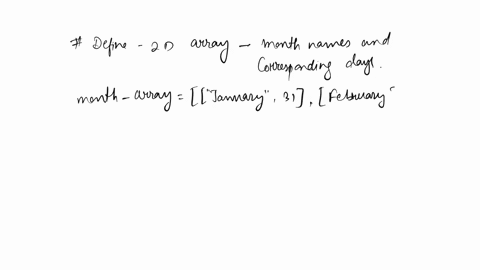 # Define - 2D array - month names and
corresponding days.
month-array = [["January", 31], [February"